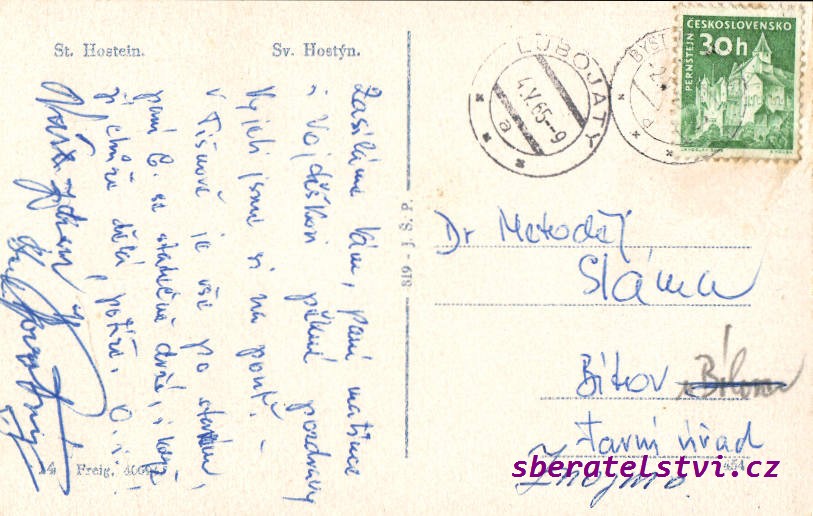 St. Hostein.
Sv. Hostýn.
Zasíláme Vám, paní matince
i Vojtěškovi pěkné pozdravy
Vyjeli jsme si na pouť.
V Tišnově je vše po starém,
paní E. se statečně drží, i když
jí chůze dělá potíže.
819 - J. Š. P.
LUBOJATY
4.V.65-9
a
BYST
ČESKOSLOVENSKO
30h
PERNŠTEJN
Dr Metoděj
Sláma
Bítov
Farní úřad
Znojmo
454
14 Freig.
sberatelstvi.cz